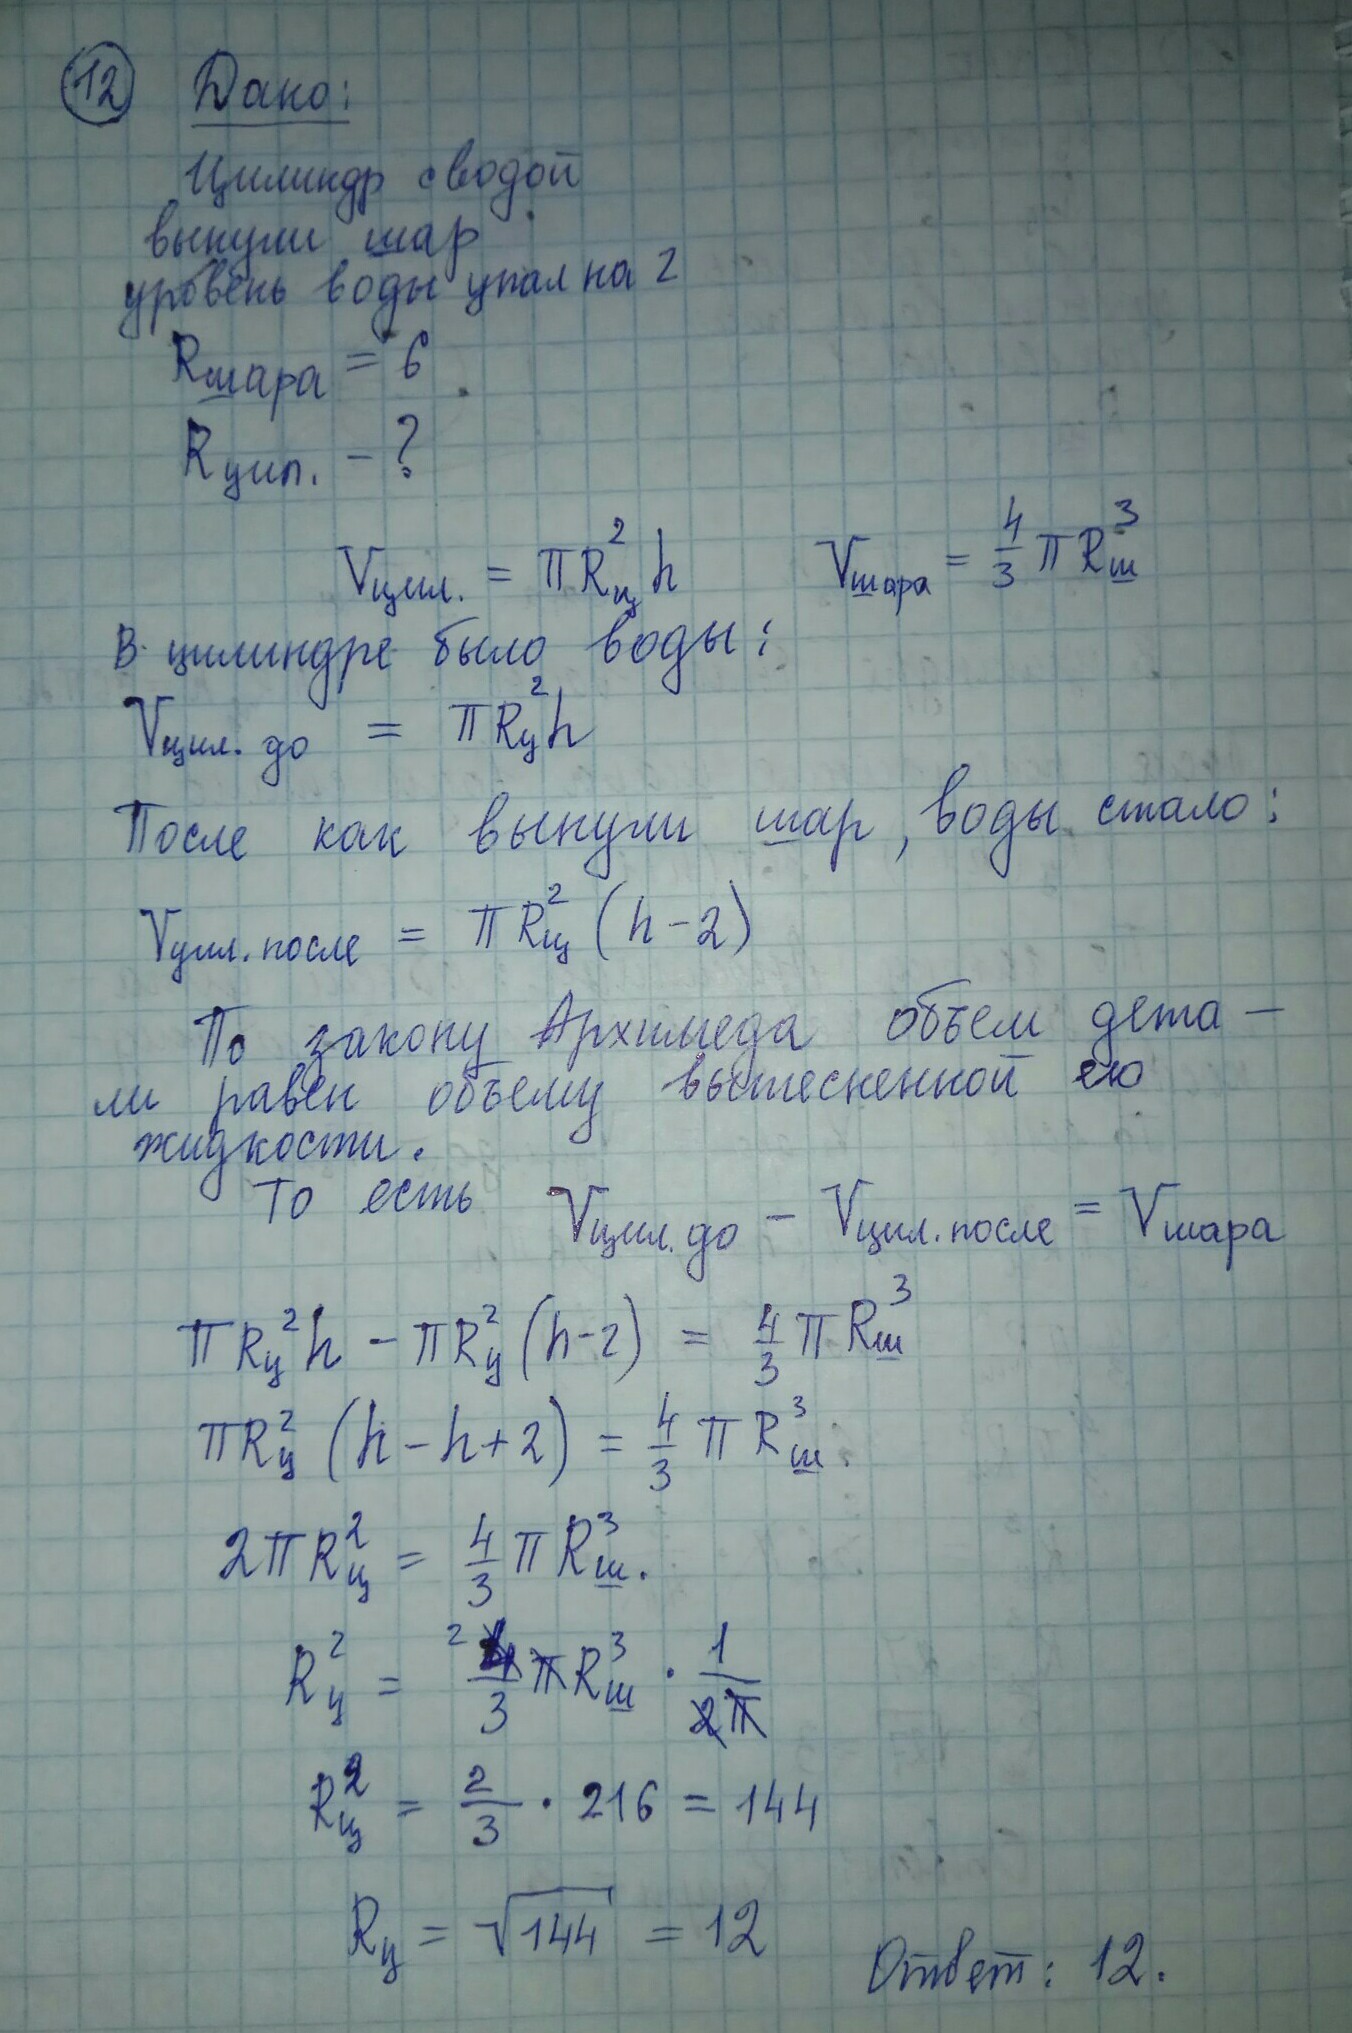 12 Дано:
Цилиндр с водой
вынули шар
уровень воды упал на 2
Rшара = 6
Rцил. - ?
Vцил. = πRц²h Vшара = 4/3 πRш³
В цилиндре было воды:
Vцил. до = πRц²h
После как вынули шар, воды стало:
Vцил. после = πRц²(h-2)
По закону Архимеда объем дета-
ли равен объему вытесненной ею
жидкости.
То есть Vцил. до - Vцил. после = Vшара
πRц²h - πRц²(h-2) = 4/3 πRш³
πRц²(h-h+2) = 4/3 πRш³.
2πRц² = 4/3 πRш³.
Rц² = ² 4/3 πRш³ · 1/2π
Rц² = 2/3 · 216 = 144
Rц = √144 = 12
Ответ: 12.